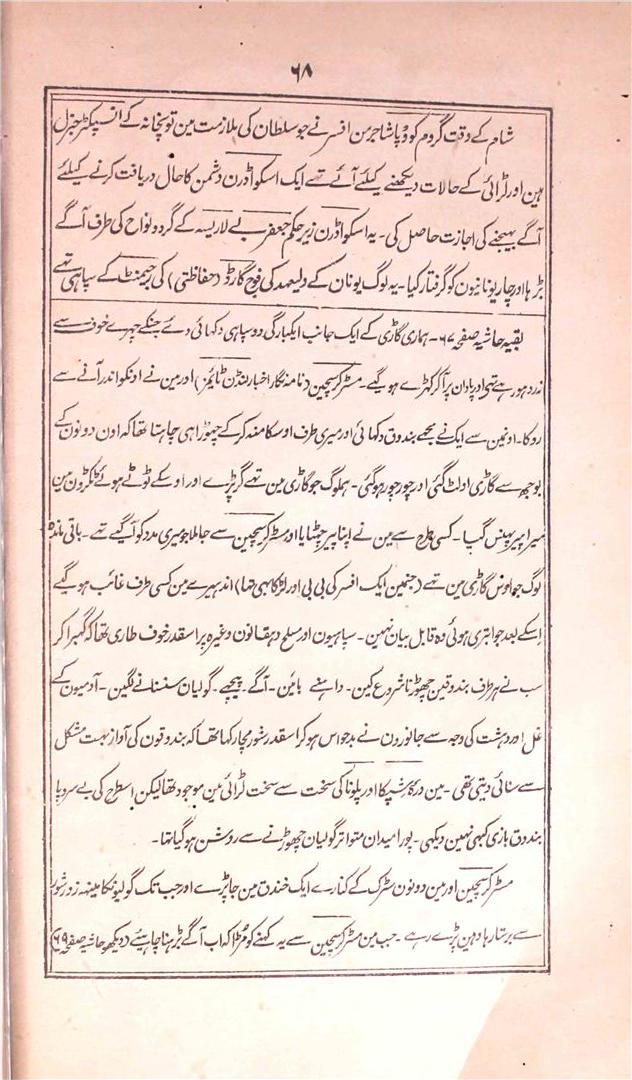 ۶۸
شام کے وقت گروم کو و پاشا جرمن افسر نے جو سلطان کی ملازمت مین توپخانہ کے انسپکٹر جنرل
ہین اور لڑائی کے حالات دیکھنے کیلئے آئے تھے ایک اسکواڈرن دشمن کا حال دریافت کرنے کیلئے
آگے بہیجنے کی اجازت حاصل کی۔ یہ اسکواڈرن زیر حکم جعفر بے لاریسہ کے گرد و نواح کی طرف آگے
بڑہا اور چار یونانیون کو گرفتار کیا۔ یہ لوگ یونان کے ولیعہد کی فوج گارڈو (حفاظتی) کی رجیمنٹ کے سپاہی تہے
بقیہ حاشیہ صفحہ ۶۷۔ ہماری گاڑی کے ایک جانب ایکبارگی دو سپاہی دکہائی دئے جنکے چہرے خوف سے
زرد ہو رہے تہے اور پادان پر آکر کہڑے ہو گیے۔ مسٹر کرسچین (نامہ نگار اخبار لنڈن ٹائمز) اور مین نے اونکو اندر آنے سے
روکا۔ اونمین سے ایک نے مجھے بندوق دکہائی اور میری طرف اوسکا منہ کر کے چہوڑا ہی چاہتا تھا کہ اون دونون کے
بوجھ سے گاڑی اولٹ گئی اور چور چور ہو گئی۔ ہملوگ جو گاڑی مین تہے گر پڑے اور اوسکے ٹوٹے ہوئے ٹکڑون مین
میرا پیر پہنس گیا۔ کسی طرح سے مین نے اپنا پیر چہٹایا اور مسٹر کرسچین سے جا ملا جو میری مدد کو آگیے تہے۔ باقی ماندہ
لوگ جو اوس گاڑی مین تہے (جنمین ایک افسر کی بی بی اور لڑکا بہی تہا) اندہیرے مین کسی طرف غائب ہو گیے
اسکے بعد جو ابتری ہوئی وہ قابل بیان نہین۔ سپاہیون اور مسلح دہقانون وغیرہ پر اسقدر خوف طاری تھا کہ گہبرا کر
سب نے ہر طرف بندوقین چھوڑنا شروع کین۔ داہنے بائین۔ آگے۔ پیچہے۔ گولیان سنسنانے لگین۔ آدمیون کے
غل اور دہشت کی وجہ سے جانورون نے بدحواس ہوکر اسقدر شور مچا رکہا تھا کہ بندوقون کی آواز بہت مشکل
سے سنائی دیتی تھی۔ مین درہ کار شپکا اور پلونا کی سخت سے سخت لڑائی مین موجود تھا لیکن اسطرح کی بے سر و پا
بندوق بازی کبہی نہین دیکہی۔ پورا میدان متواتر گولیان چہوڑنے سے روشن ہو گیا تہا۔
مسٹر کرسچین اور مین دونون سٹرک کے کنارے ایک خندق مین جا پڑے اور جب تک گولیونکا مینہ زور شور
سے برستا رہا وہین پڑے رہے۔ جب مین مسٹر کرسچین سے یہ کہنے کو مڑا کہ اب آگے بڑہنا چاہیئے (دیکھو حاشیہ صفحہ ۶۹)